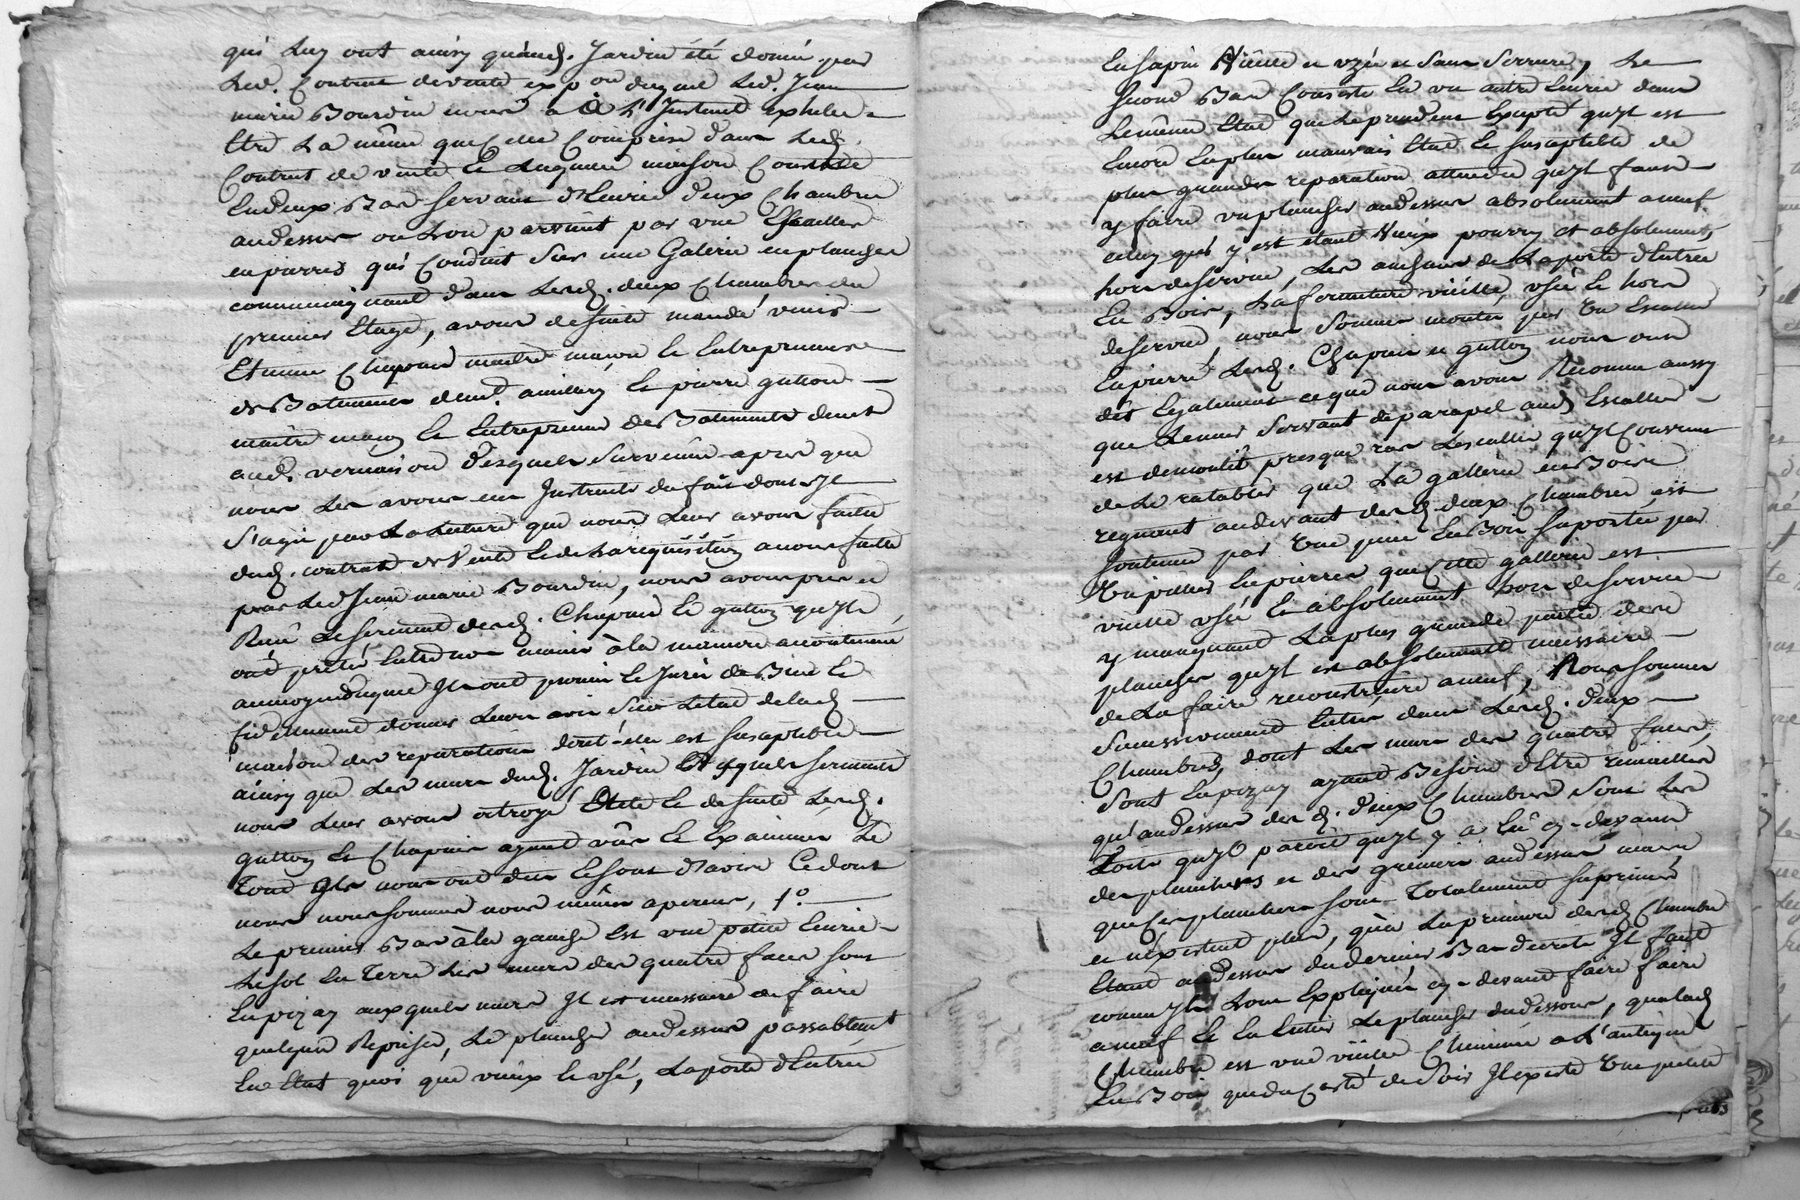 qui Luy ont ainsy qu'aud. Jardin été donné par
Led. Contrat de vente exp.on duquel Led. Jean
marie Bourdin nous a à L'Instant exhibée
Etre La même que Celle Comprise dans Led.
Contrat de vente Et Laquelle maison Consiste
En deux Bas servant d'Ecurie deux Chambres
audessus ou Lon parvient par une Escallier
en pierres qui Conduit sur une Galerie en plancher
communiquant dans Lesd. deux Chambres du
premier Etage, avons de suitte mandé venir
Etienne Chapuis maitre maçon Et Entrepreneur
de Batiments dem.t Et pierre gutton
maitre maçon Et Entrepreneur de Batiments demt
aud. vernaison Lesquels survenus apres que
nous Les avons eu Instruits du fait dont Il
S'agit par La Lecture que nous Leur avons faitte
dud. contrat de Vente Et de La requisition a nous faitte
par Led. Jean marie Bourdin, nous avons pris et
Reçu Le serment desd. Chapuis Et gutton qu'Ils
ont prêté Entre nos mains à la maniere accoutumée
au moyen duquel Ils ont promis Et Juré de Bien Et
fidellement donner Leurs avis sur L'état de lad.
maison des reparations dont elle est susceptible
ainsy que Les murs dud. Jardin duquel serment
nous Leur avons octroyé Acte Et de suitte Lesd.
guttons Et Chapuis ayant vûs Et Examiner Le
Tout Ils nous ont dit Et sont d'avis Ce dont
nous nous sommes nous mêmes aperçus, 1.°
Le premier Bas à la gauche Est une petite Ecurie
Le sol En Terre Les murs des quatre faces sont
En pizay auxquels murs Il est necessaire de faire
quelques Reprises, Le plancher audessus passablement
En Etat quoi que vieux Et usé, La porte d'Entrée
En sapin Vieille et uzée et sans Serrure, Le
second Bas Consiste En une autre Ecurie dans
Le même Etat que La precedente Excepté qu'Il est
Encore En plus mauvais Etat Et susceptible de
plus grandes reparations attendu qu'Il faut
y faire un plancher audessus absolument a neuf
celuy qui y est etant Vieux pourry et absolument
hors de service, Les de La porte d'Entrée
En Bois, La fermeture vieille, usée Et hors
de service, nous sommes montés par Un Escalier
En pierre Lesd. Chapuis et guttons nous ont
dit Egalement ce que nous avons Reconnu aussy
que Le mur servant de parapel aud. Escallier
est demoulit presque ras Lescallier qu'Il Convient
de Le retablir que La gallerie en Bois
regnant audevant desd. deux Chambres est
soutenue par Une piece En Bois suportée par
Un pillier En pierres que Cette gallerie est
vieille usée Et absolument hors de service
y manquant La plus grande partie des
plancher qu'Il est absolument necessaire
de La faire reconstruire a neuf, Nous sommes
successivement Entrés dans Lesd. deux
Chambres, dont Les murs des quatre faces
sont En pizay ayant Besoin d'Etre recrépies
qu'audessus des d. deux Chambres sont Les
Toits qu'Il paroit qu'Il y a Eû cy-devant
des planchers et des greniers audessus mais
que Ces planchers sont Totalement suprimés
et n'existent plus, qu'à La premiere desd. Chambres
Etant audessus du dernier Bas decrit Il faut
comme Ils L'ont Expliqué cy-devant faire faire
a neuf Et En Entier Le plancher dudessous, qu'a lad.
Chambre est une vieille Cheminée a L'antique
En Bois que du Costé de soir Il existe Une petite